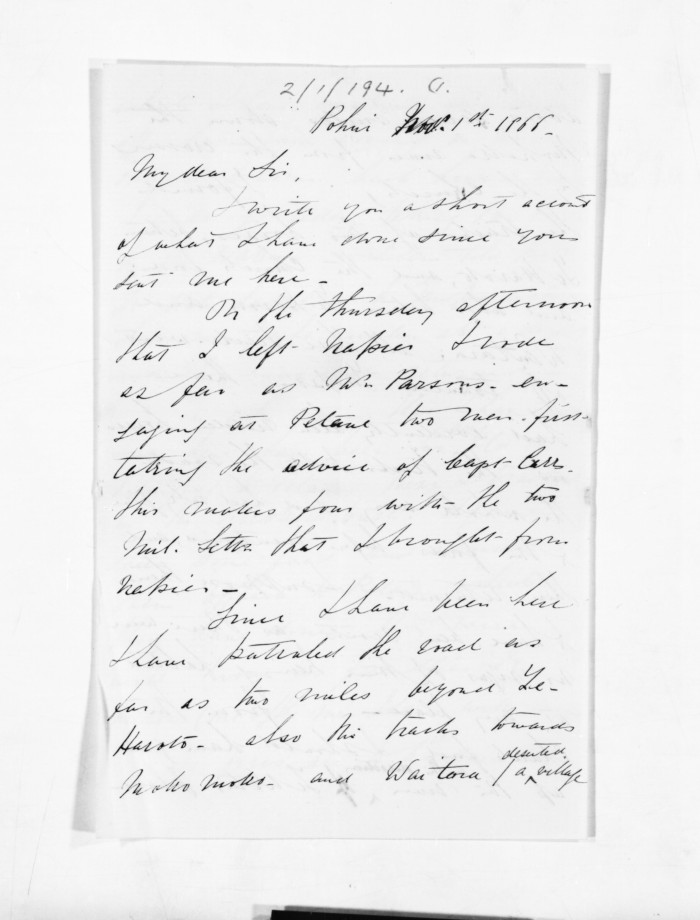 2/1/194. O.
Pohui Nov. 1st 1866.
My dear Sir,
I write you a short account
of what I have done since you
sent me here -
On the Thursday afternoon
that I left Napier I rode
as far as Mr Parsons - en-
gaging at Petane two men - first
taking the advice of Capt Carr.
this makes four with the two
Mil. Settrs that I brought from
Napier -
Since I have been here
I have patroled the road as
far as two miles beyond Te-
Haroto - also the tracks towards
Mohomoko - and Waitara (a deserted village